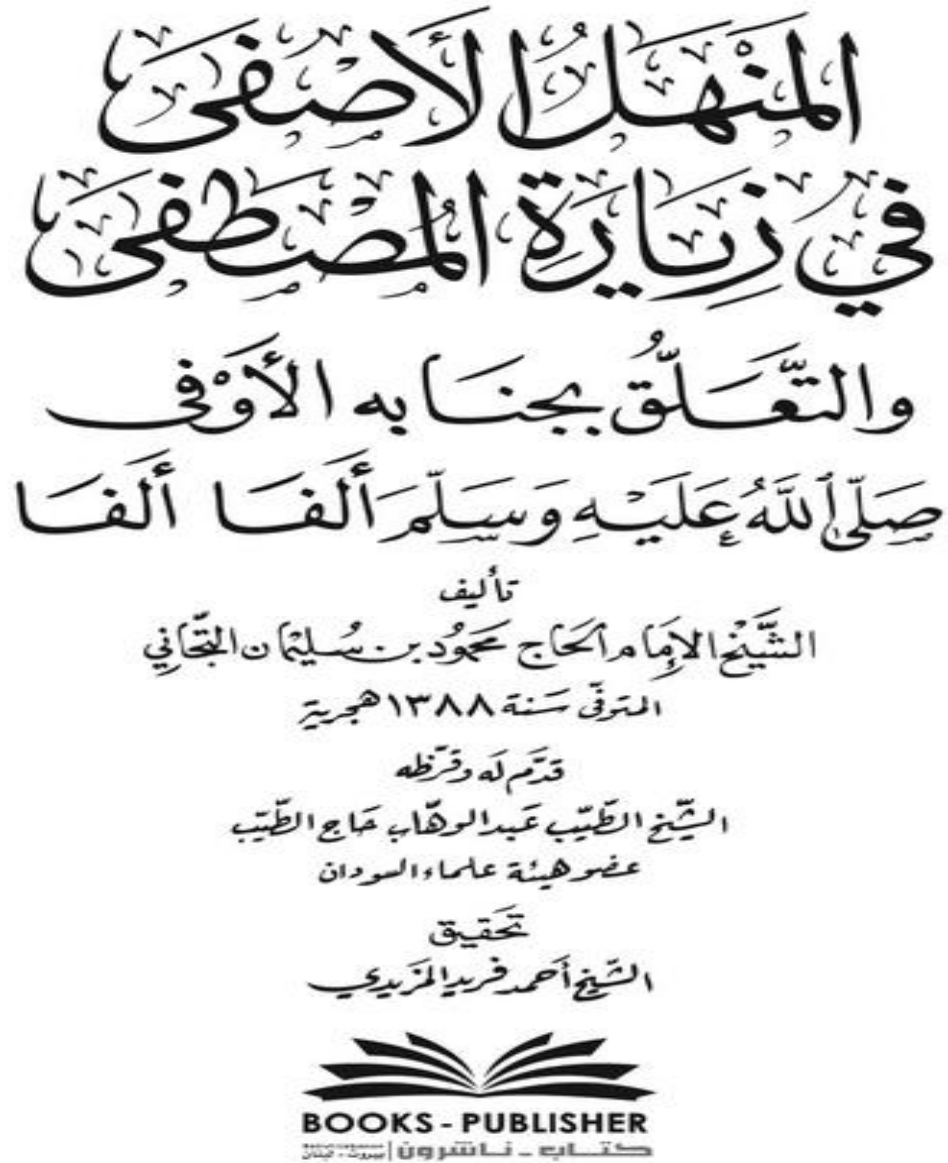 المَنْهَلُ الأَصْفَى
فِي زِيَارَةِ المُصْطَفَى
والتَّعَلُّقُ بجنَابه الأَوْفى
صَلَّى ٱللَّهُ عَلَيْهِ وَسَلَّمَ أَلفَا أَلفَا
تأليف
الشَّيْخ الإمَام الحَاج محَمُود بن سُليْمان التّجَاني
المتوفّى سَنة ١٣٨٨ هجرية
قدَّم لَه وقرّظه
الشّيخ الطّيّب عَبد الوهّاب حَاج الطّيّب
عضو هيئة علماء السودان
تحَقيق
الشّيخ أحَمد فريد المزَيدي
BOOKS - PUBLISHER
كتاب - ناشرون | بيروت - لبنان